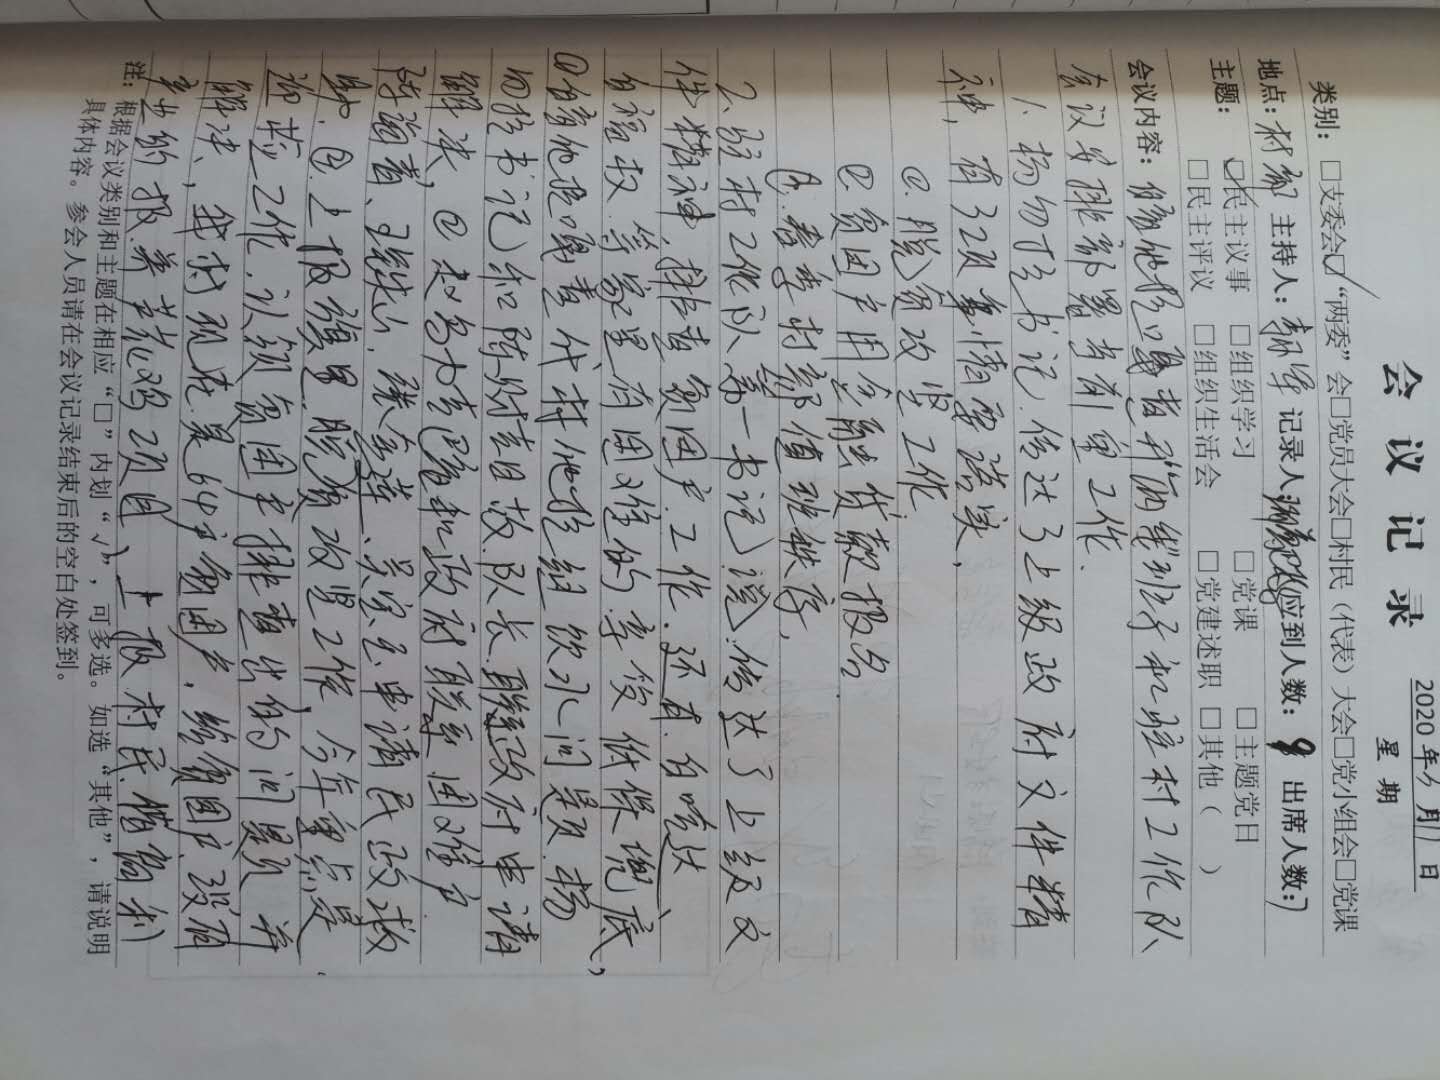 会议记录
2020年3月11日
星期
类别：□支委会☑“两委”会□党员大会□村民（代表）大会□党小组会□党课
地点：村部 主持人： 军 记录人： 应到人数：9 出席人数：7
主题：☑民主议事 □组织学习 □党课 □主题党日
□民主评议 □组织生活会 □党建述职 □其他（ ）
会议内容：白音他拉嘎查开“两委”班子和驻村工作队
会议安排部署当前重工作.
1. 杨勿拉书记.传达了上级政府文件精
神，有3项事情要落实，
①.脱贫攻坚工作，
②.贫困户用金融贷款报名.
③.春季村部值班秩序，
2、驻村工作队第一书记 ，传达了上级文
件精神，排查贫困户.工作.还有.白哈达、
白福权.等家里有困难的享受低保兜底，
①白音他拉嘎查代村他拉组饮水问题.杨
勿拉书记和陈财吉日 队长.联系政府申请
解决，②赵乌力吉巴音和政府联系困难户
陈海青、王铁山，张金莲、吴宝玉申请民政救
助.③.上报旗里.脱贫攻坚工作，今年重点是
迎检工作.认领贫困户排查出的问题并
解决，我村现在是64户贫困户，给贫困户没有
产业的报.养芦花鸡项目、上报.村民 利
注：根据会议类别和主题在相应“□”内划“√”，可多选。如选“其他”，请说明
具体内容。参会人员请在会议记录结束后的空白处签到。